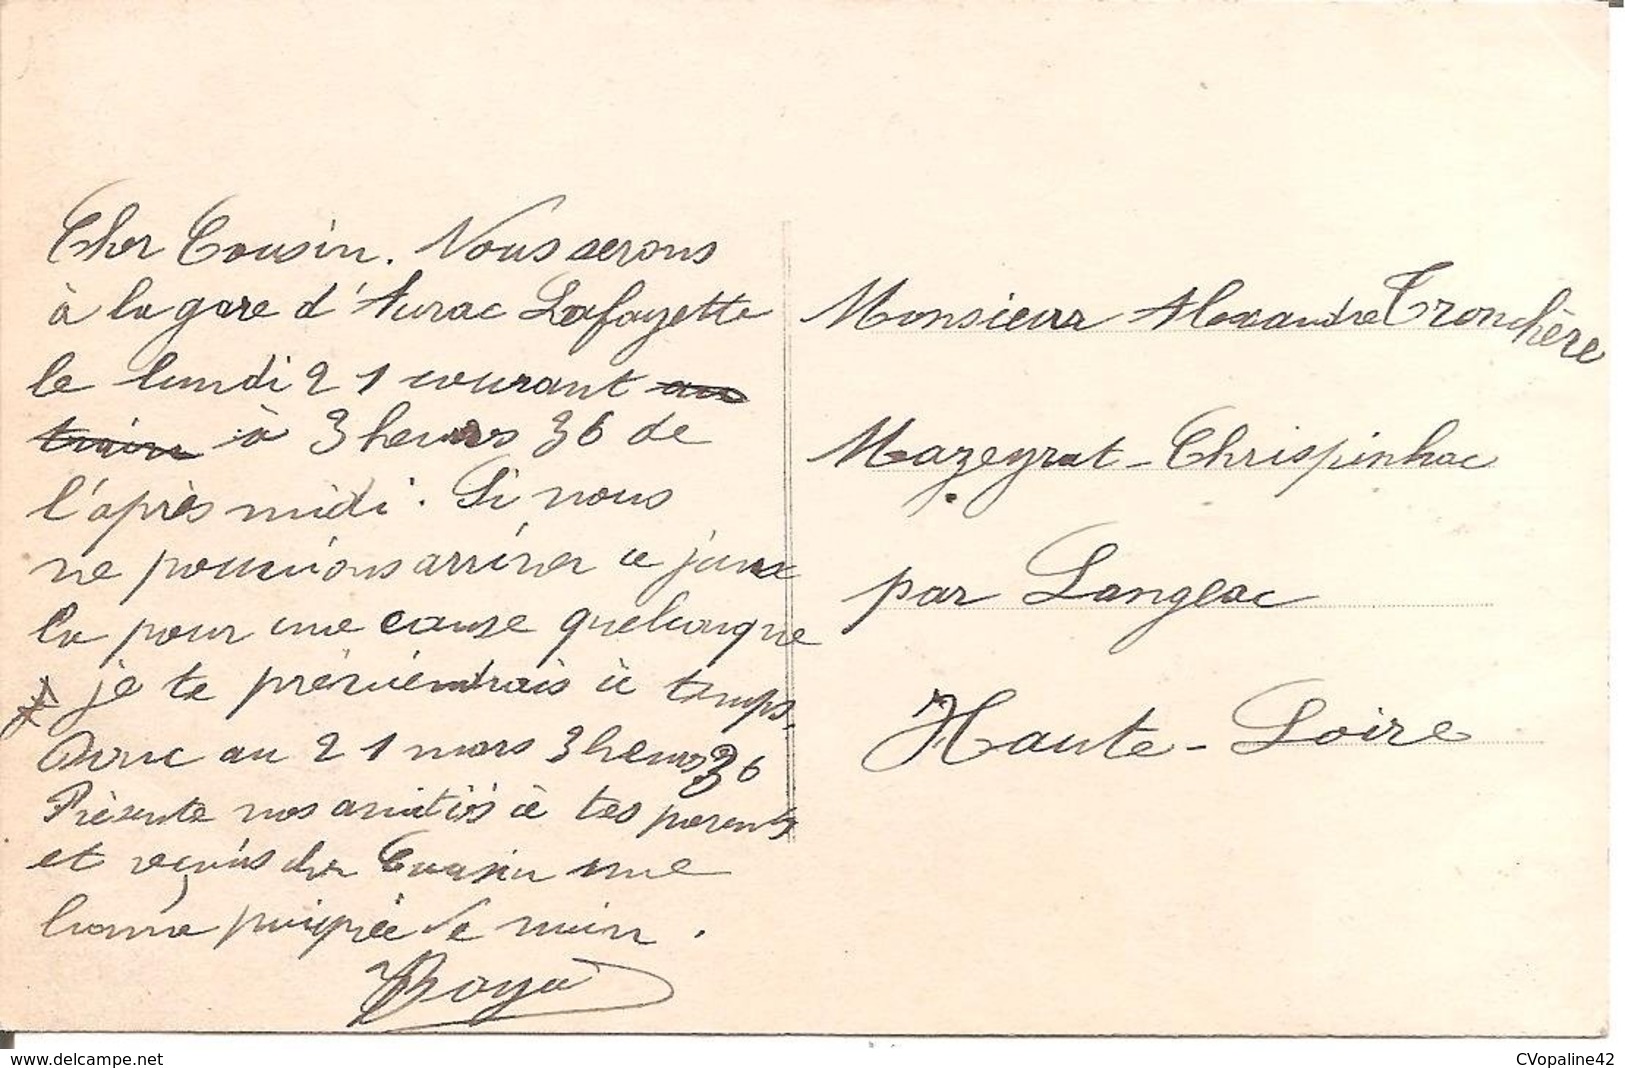 Cher Cousin. Nous serons
à la gare d'Aurac Lafayette
le lundi 21 courant au
train à 3 heures 36 de
l'après midi. Si nous
ne pouvions arriver ce jour
la pour une cause quelconque
je te préviendrais à temps.
Donc au 21 mars 3 heures 36
Présente nos amitiés à tes parents
et reçois cher Cousin une
bonne poignée de main.
Monsieur Alexandre Tronchère
Mazeyrat-Chrispinhac
par Langeac
Haute-Loire
www.delcampe.net
CVopaline42